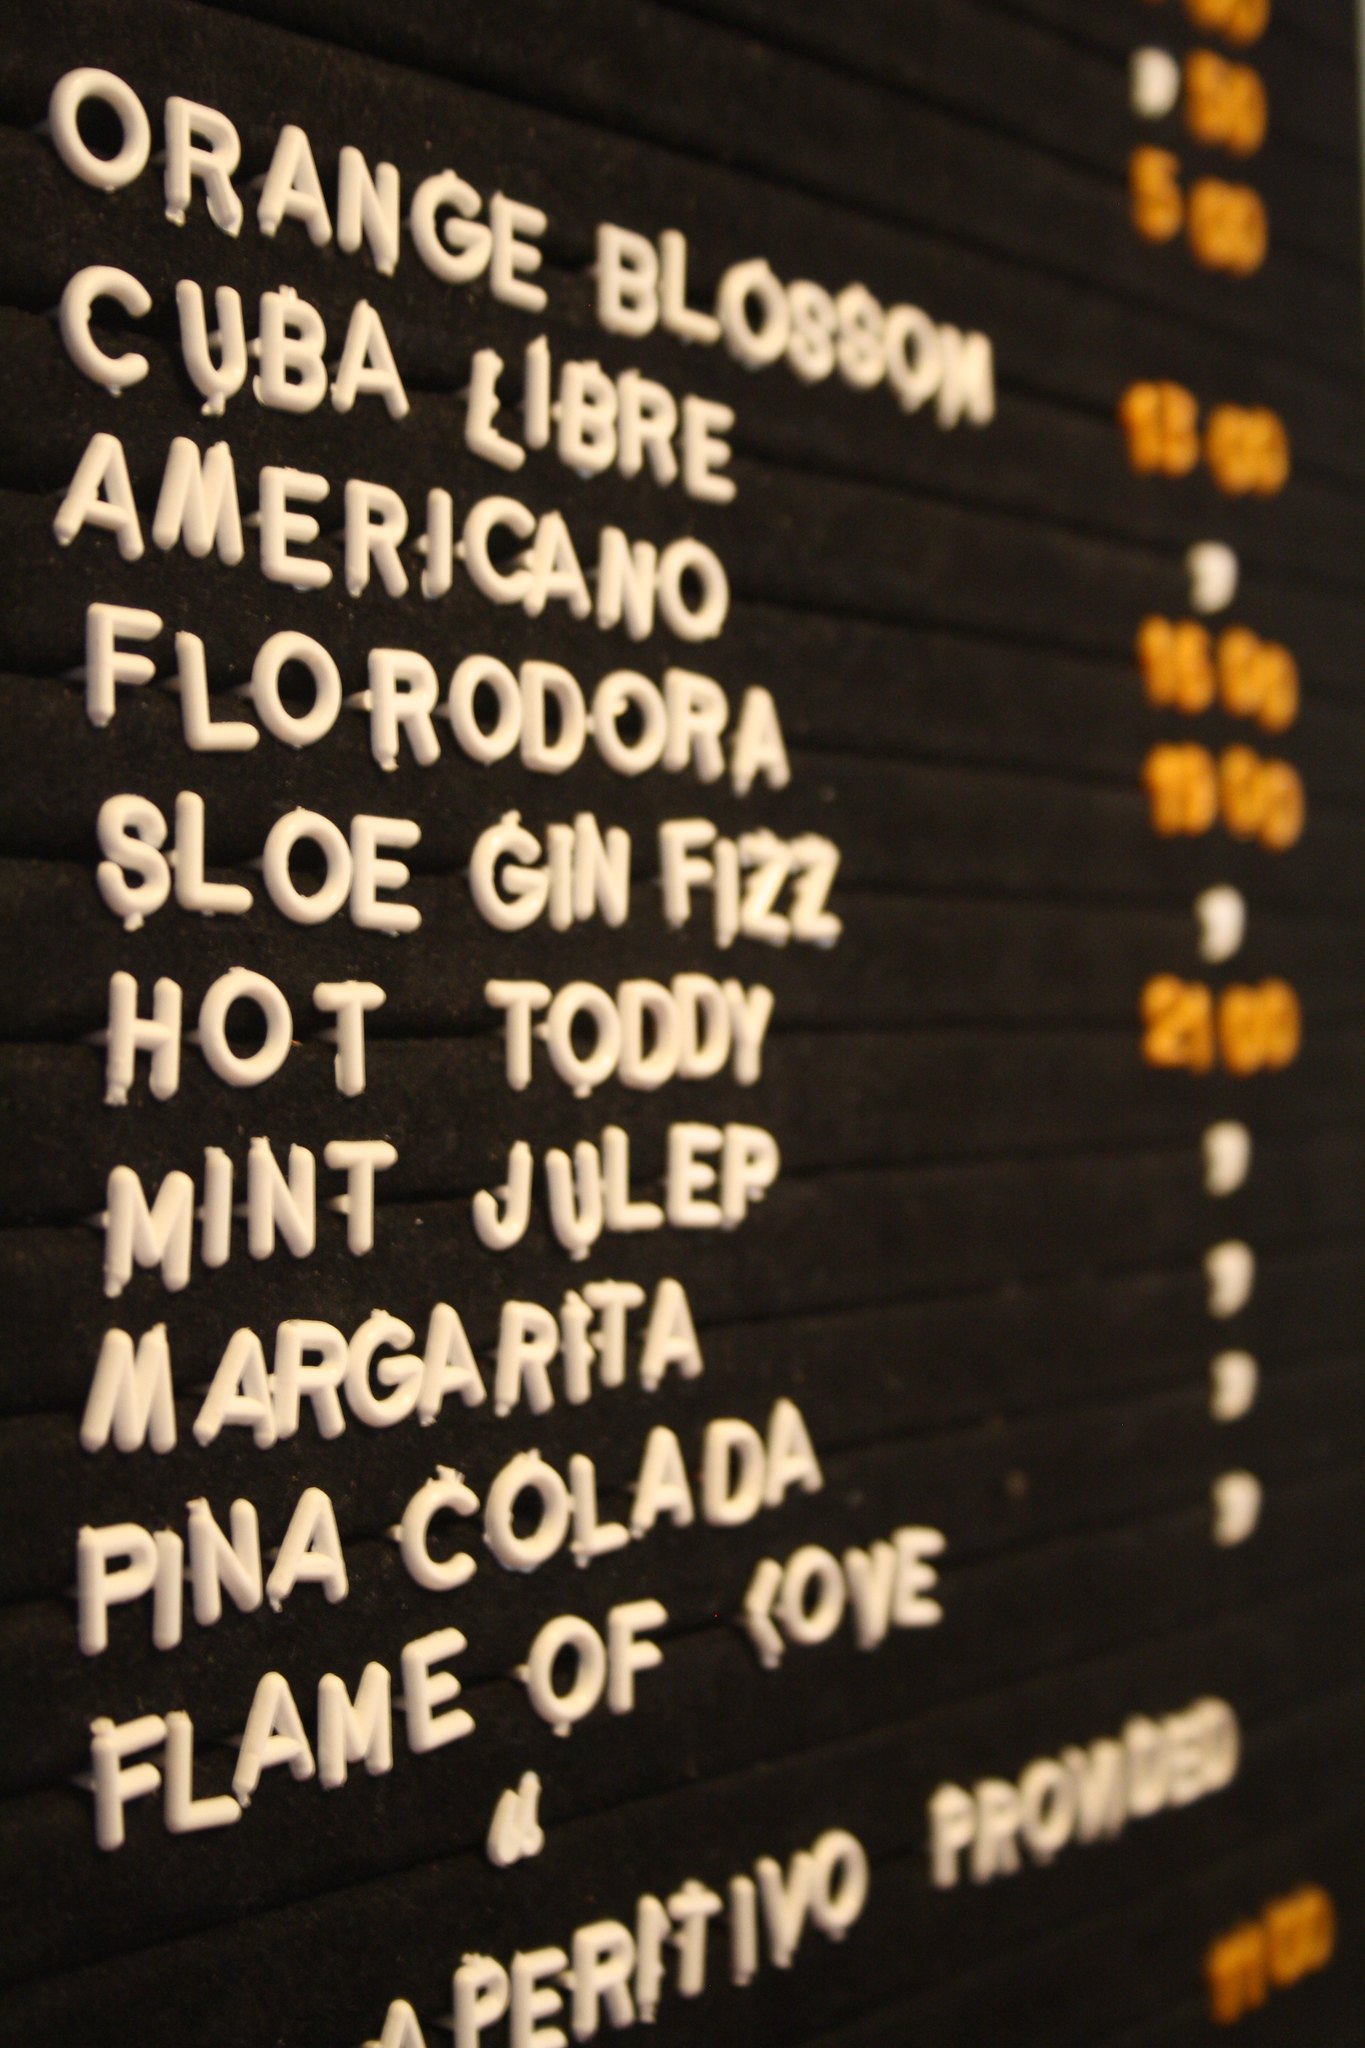 ORANGE BLOSSOM
CUBA LIBRE
AMERICANO
FLORODORA
SLOE GIN FIZZ
HOT TODDY
MINT JULEP
MARGARITA
PINA COLADA
FLAME OF LOVE
"
APERITIVO PROVIDED